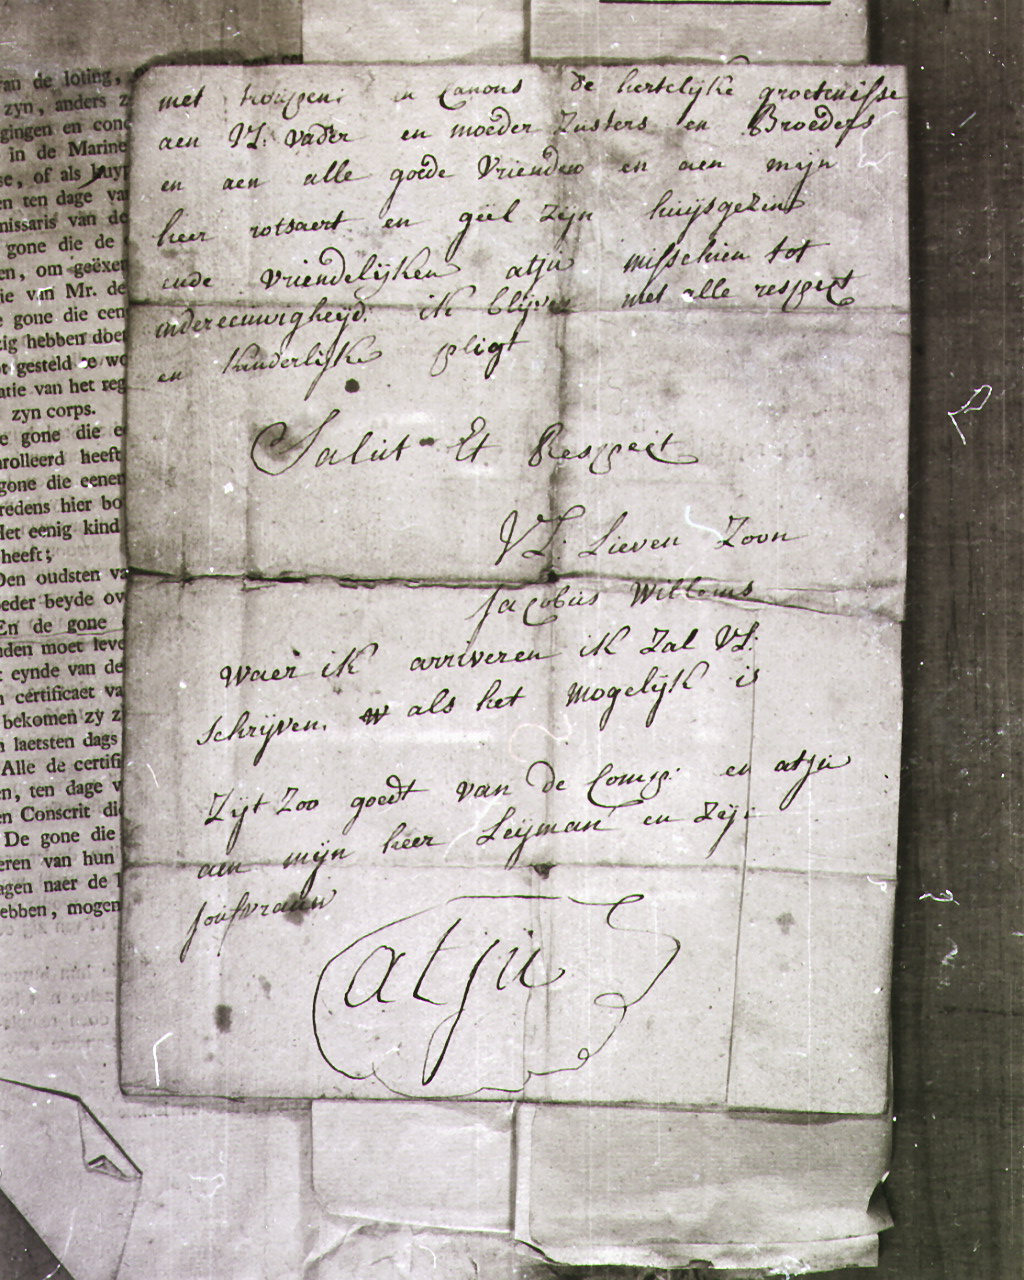 van de loting,
zyn, anders z
gingen en cond
in de Marine
se, of als
en ten dage va
missaris van de
gone die de
en, om geëxe
ie van Mr. de
e gone die een
zig hebben doet
ot gesteld te wo
atie van het reg
zyn corps.
e gone die e
nrolleerd heeft
gone die eener
redens hier bo
Het eenig kind
heeft;
Den oudsten va
oeder beyde ov
En de gone
nden moet leve
eynde van de
n certificaet va
bekomen zy z
n laetsten dags
Alle de certifi
en, ten dage v
en Conscrit di
De gone die
eren van hun
agen naer de
ebben, mogen
met troupen en Canons de hertelijke groetenisse
aen VL: vader en moeder Zusters en Broeders
en aen alle goede Vrienden en aen mijn
heer rotsaert en geel Zijn huijsgezin
ende vriendelijken atju misschien tot
indereeuwigheijd: ik blijven met alle respect
en kinderlijke pligt
Salut Et Respect
VL: Lieven Zoon
Jacobus Willems
Waer ik arriveren ik Zal VL:
schrijven, als het mogelijk is
Zijt Zoo goedt van de Comp: en atju
aen mijn heer Leijman en Zij:
joufvrauw
atju